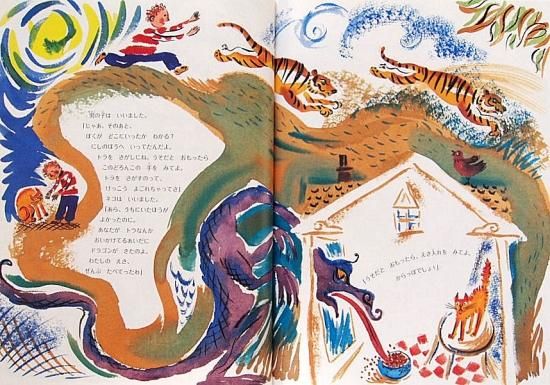 男の子は いいました。
「じゃあ、そのあと、
ぼくが どこにいったか わかる?
にしのほうへ いってたんだよ。
トラを さがしにね。うそだと おもったら
このどろんこの 手を みてよ。
トラを さがすのって、
けっこう よごれちゃってさ」
ネコは いいました。
「あら、うちにいたほうが
よかったのに。
あなたが トラなんか
おいかけてるあいだに
ドラゴンが きたのよ。
わたしの えさ、
ぜんぶ たべてったわ」
「うそだと おもったら、えさ入れを みてよ。
からっぽでしょ!」